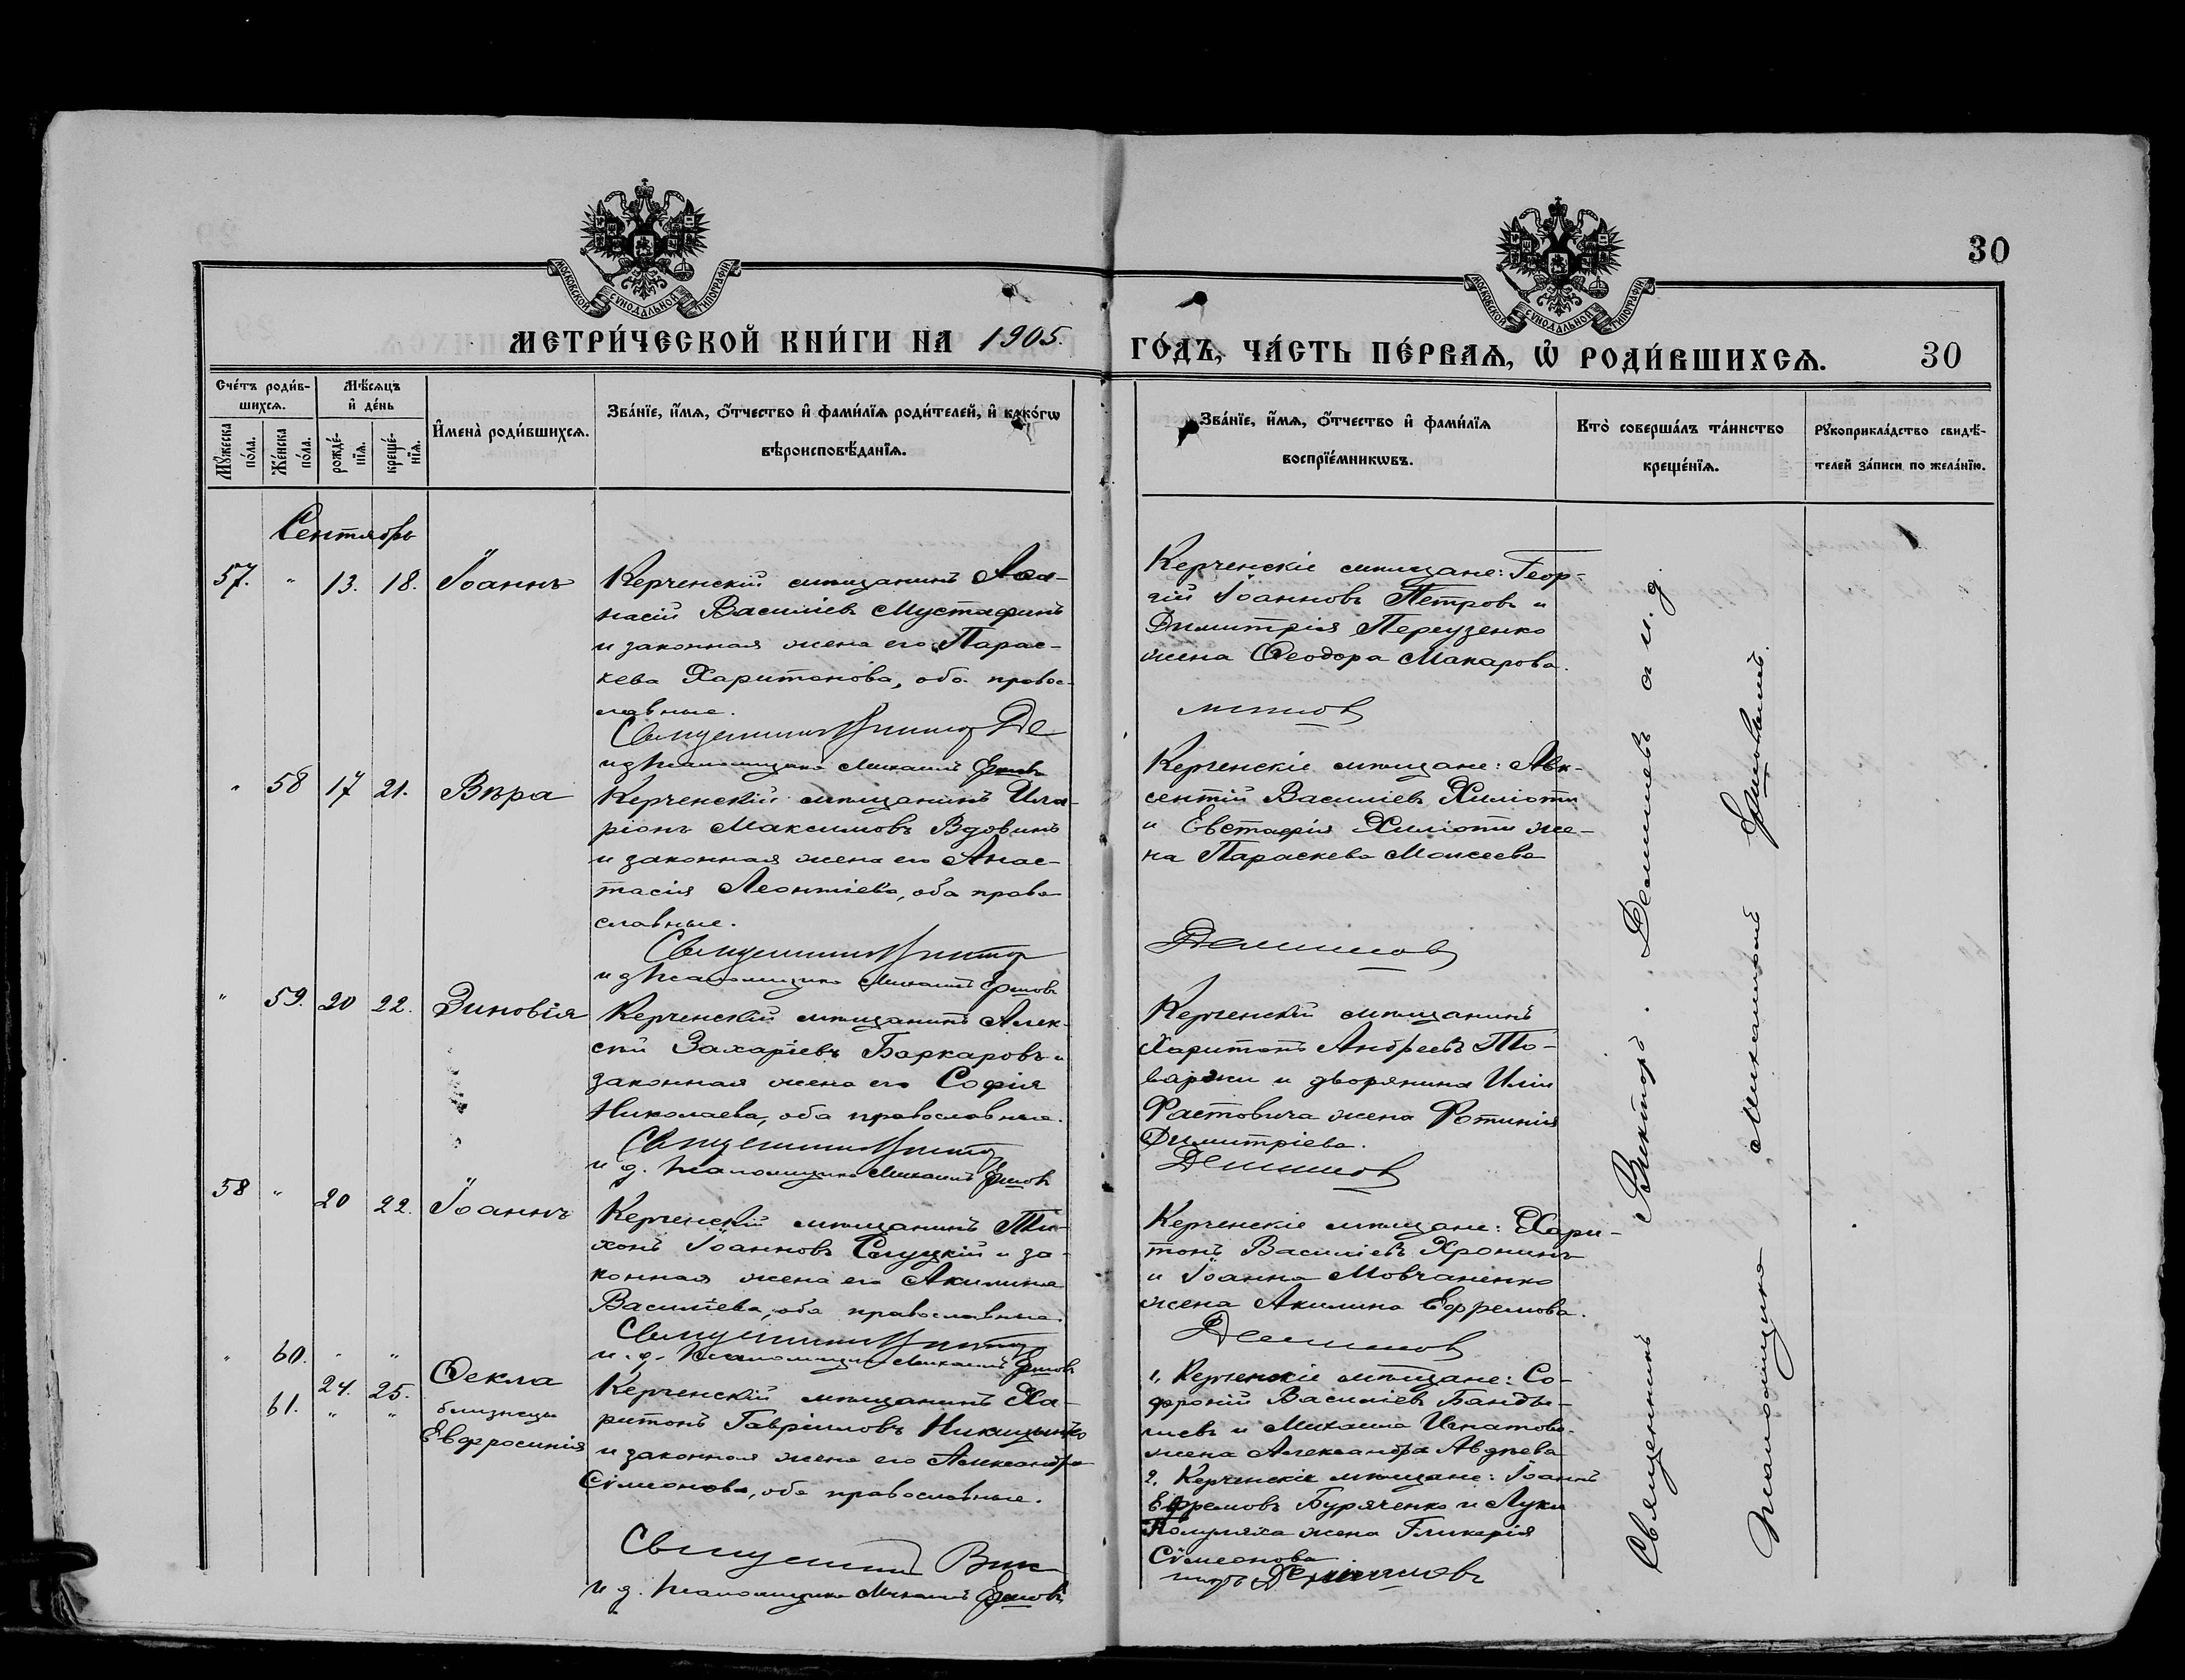 МОСКОВСКОЙ СѴНОДАЛЬНОЙ ТИПОГРАФІИ
МОСКОВСКОЙ СѴНОДАЛЬНОЙ ТИПОГРАФІИ
30
МЕТРИ́ЧЕСКОЙ КНИ́ГИ НА 1905.
ГО́ДЪ, ЧА́СТЬ ПЕ́РВАѦ, Ѡ҆ РОДИ́ВШИХСѦ.
30
Сче́тъ роди́в-
шихсѧ.
Мꙋ́жеска по́ла.
Же́нска по́ла.
Мѣ́сѧцъ
и҆ де́нь
рожде́-
нїѧ.
креще́-
нїѧ.
И҆мена̀ роди́вшихсѧ.
Зва́нїе, и҆́мѧ, ѻ҆́тчество и҆ фами́лїѧ роди́телей, и҆ како́гѡ
вѣроисповѣ́данїѧ.
Зва́нїе, и҆́мѧ, ѻ҆́тчество и҆ фами́лїѧ
воспрїе́мникѡвъ.
Кто̀ соверша́лъ та́инство
креще́нїѧ.
Рꙋкоприкла́дство свидѣ́-
телей за́писи по жела́нїю.
Сентябрь
57. " 13. 18. Іоаннъ
Керченскій мѣщанинъ Аѳа-
насій Василіевъ Мустафинъ
и законная жена его Парас-
кева Харитонова, оба правос-
лавные.
Священникъ Викторъ Де
и д псаломщика Михаилъ Ершовъ
Керченскіе мѣщане: Геор-
гій Іоанновъ Петровъ и
Димитрія Переузенко
жена Ѳеодора Макарова.
" 58 17 21. Вѣра
Керченскій мѣщанинъ Ила-
ріонъ Максимовъ Вдовинъ
и законная жена его Анас-
тасія Леонтіева, оба право
славные.
Священникъ Виктор
и д псаломщика Михаилъ Ершовъ
Керченскіе мѣщане: Авк-
сентій Василіевъ Хиліоти
и Евстафія Хиліоти же-
на Параскева Моисеева
" 59. 20 22. Зиновія
Керченскій мѣщанинъ Алек-
сѣй Захаріевъ Баркаровъ и
законная жена его Софія
Николаева, оба православные.
Священникъ Виктор
и д. псаломщика Михаилъ Ершовъ
Керченскій мѣщанинъ
Харитонъ Андреевъ То-
варджи и дворянина Иліи
Растовича жена Фотинія
Димитріева.
58 " 20 22. Іоаннъ
Керченскій мѣщанинъ Ти-
хонъ Іоанновъ Слуцкій и за-
конная жена его Акилина
Василіева, оба православные.
Священникъ Виктор
и. д. псаломщика Михаилъ Ершовъ
Керченскіе мѣщане: Хари-
тонъ Василіевъ Хронинъ
и Іоанна Мовчаненко
жена Акилина Ефремова.
" 60. " "
Ѳекла
24. 25.
61. " " близнецы
Евфросинія
Керченскій мѣщанинъ Ха-
ритонъ Гавріиловъ
и законная жена его Александра
Сѵмеонова, оба православные.
Священникъ Вик
и д. псаломщика Михаилъ Ершовъ
1, Керченскіе мѣщане: Со-
фроній Василіевъ
и Михаила Игнатова
жена Александра Авдѣева
2. Керченскіе мѣщане: Іоаннъ
Ефремовъ Буряченко и Луки
жена Гликерія
Сѵмеонова
Священникъ Викторъ. Демишевъ и и. д.
псаломщика Михаилъ Ершовъ.